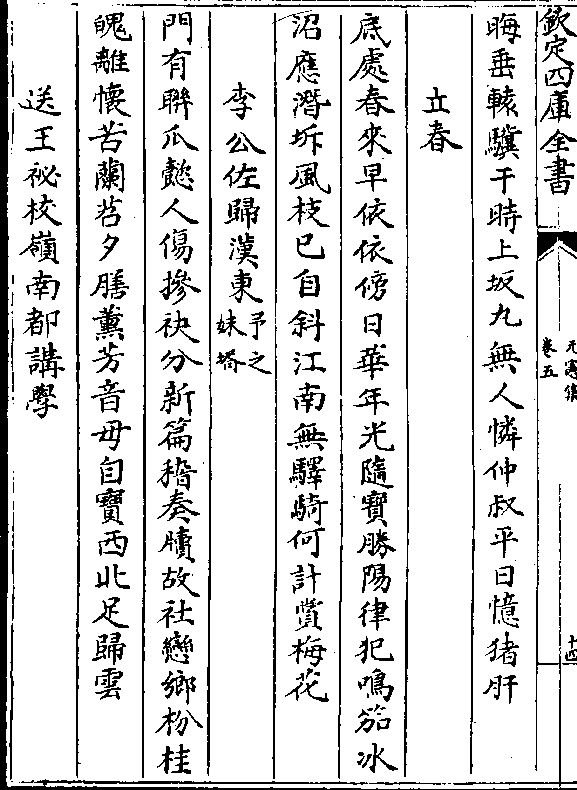 欽定四庫全書
元憲集
卷五
十四
晦垂轅驥干時上坂九無人憐仲叔平日憶猪肝
立春
底處春來早依依傍日華年光隨寶勝陽律犯鳴笳冰
沼應潛坼風枝已自斜江南無驛騎何計賞梅花
李公佐歸漢東予之妹壻
門有聨瓜懿人傷摻袂分新篇稽奏牘故社戀鄉枌桂
魄離懷苦蘭苕夕膳薫芳音毋自寶西北足歸雲
送王祕校嶺南都講學